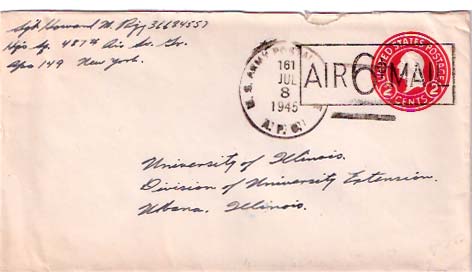 Sgt Howard M. Rizz 36684557
Hqs Sq. 487th Air Sv. Gr.
Apo 149 New York.
U.S. ARMY POSTAL
161
JUL
8
1945
A.P.O.
AIR 6 MAIL
UNITED STATES
2 2
CENTS
University of Illinois.
Division of University Extension.
Urbana. Illinois.